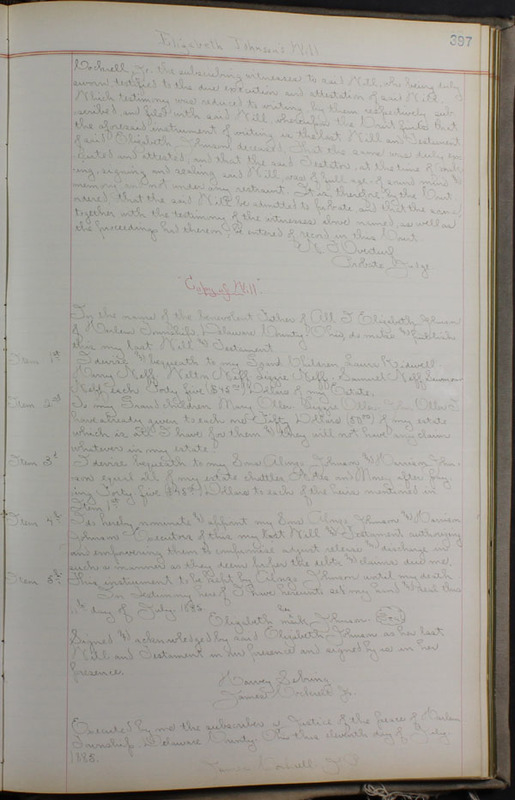 Elizabeth Johnson's Will
397
Cockrell, Jr. the subscribing witnesses to said Will, who being duly
sworn testified to the due execution and attestation of said Will,
Which testimony was reduced to writing by them respectively sub-
scribed, and filed with said Will, wherefore the Court finds that
the aforesaid instrument of writing is the last Will and Testament
of said Elizabeth Johnson deceased, that the same was duly ex-
ecuted and attested, and that the said Testator, at the time of mak-
ing, signing and sealing said Will, was of full age, of sound mind &
memory and not under any restraint. It is therefore by the Court
ordered that the said Will be admitted to probate, and that the same
together with the testimony of the witnesses above named, as well as
the proceedings had therein, be entered of record in this Court
Overturf
Probate Judge
"Copy of Will"
In the name of the benevolent Father of All I Elizabeth Johnson
of Harlem Township Delaware County Ohio, do make & publish
this my last Will & Testament
Item 1st I devise & bequeath to my Grand Children Laura
Harry Neff, Neff, Neff, Samuel Neff
Neff each Forty five ($45.00) Dollars of my Estate.
Item 2nd To my Grandchildren Mary I
have already given to each one Fifty Dollars (50.00) of my estate
which is all I have for them & they will not have any claim
whatever in my estate.
Item 3d I devise & bequeath to my Sons Alonzo Johnson & Harrison John-
son equal all of my estate chattles Notes and Money after pay-
ing Forty five ($45.00) Dollars to each of the heirs mentioned in
Item 1st
Item 4th I do hereby nominate & appoint my Sons Alonzo Johnson & Harrison
Johnson Executors of this my last Will & Testament authorizing
and empowering them to compromise adjust release & discharge in
such a manner as they deem proper the debts & claims due me.
Item 5th This instrument to be kept by Alonzo Johnson until my death
In testimony hereof I have hereunto set my hand & seal this
11th day of July 1885
her
Elizabeth mark Johnson
Signed & acknowledged by said Elizabeth Johnson as her last
Will and Testament in our presence and signed by us in her
presence.
Harvey Sebring
James Cockrell Jr.
Executed by me the subscriber a Justice of the peace of Harlem
Township, Delaware County, Ohio this eleventh day of July
1885.
James Cockrell J.P.